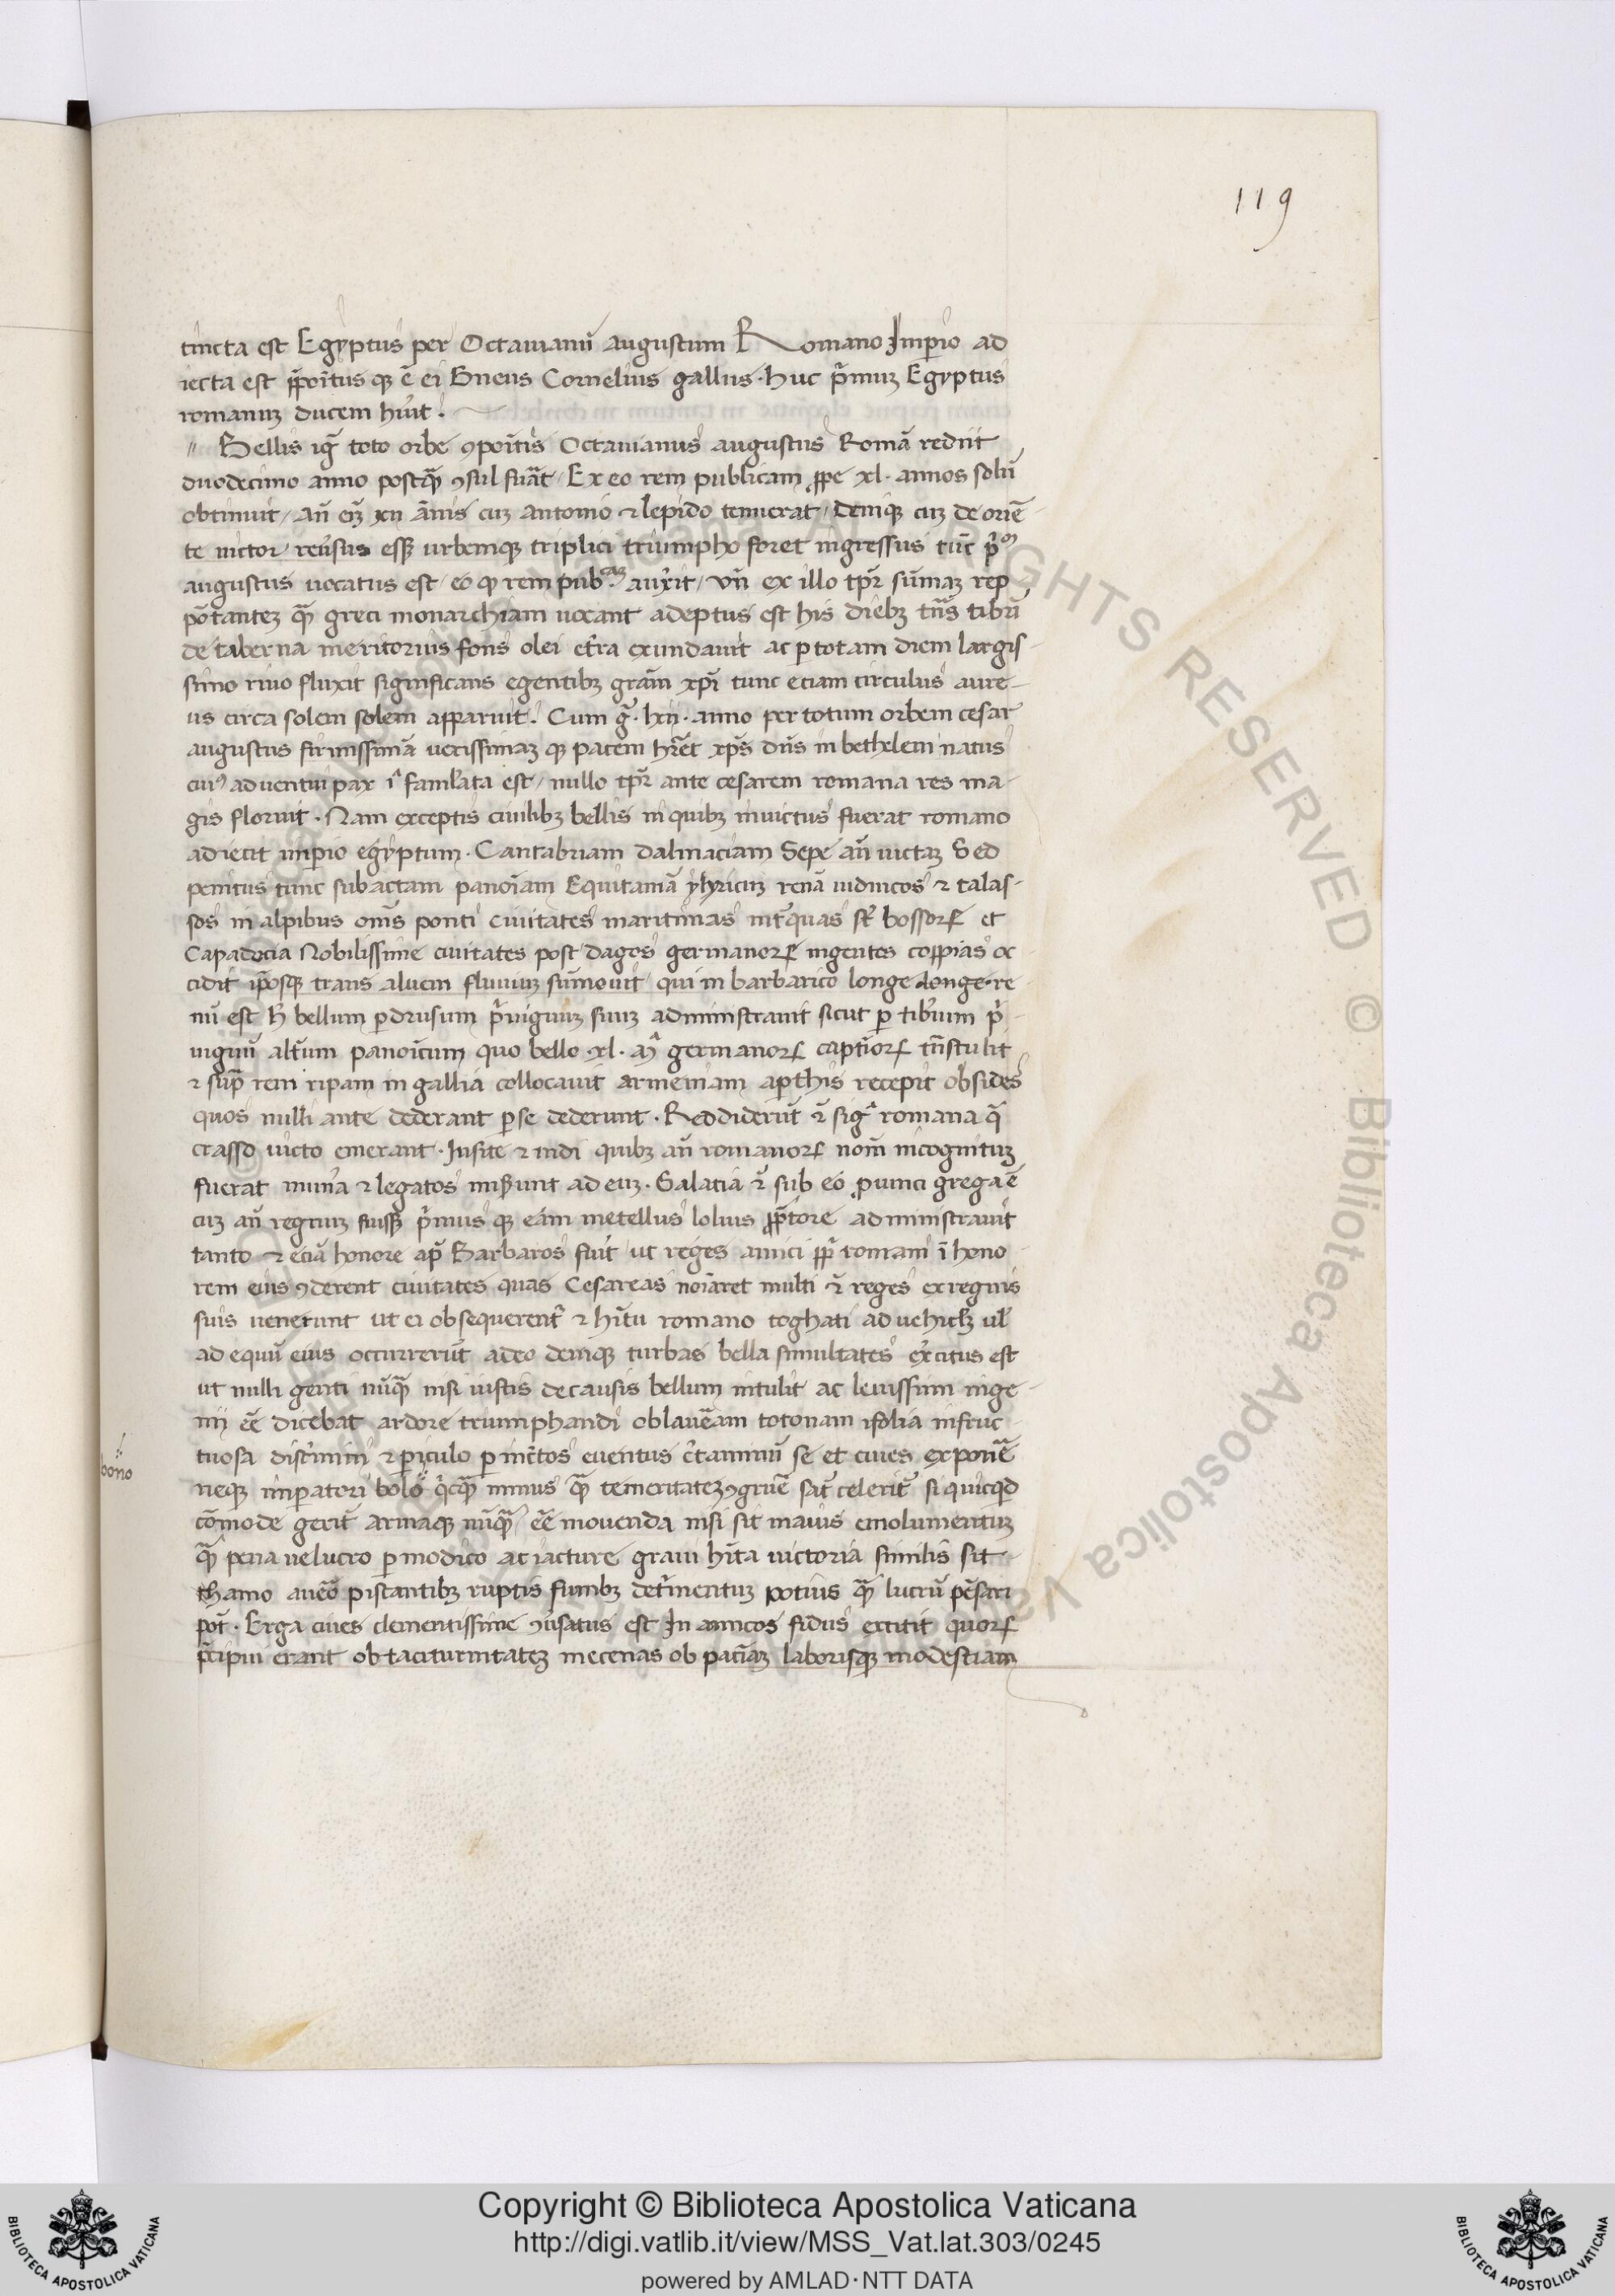 119
tincta est Egyptus per Octauianũ augustum Romano Imperio ad
iecta est p̃poĩtus qꝫ ẽ ei Gneus Cornelius gallus · huc p̃muꝫ Egyptus
romanuꝫ ducem hũit.
Bellis ig̃ toto orbe ꝯpoĩtis Octauianus augustus Romã rediit
duodecimo anno postq̃ ꝯsul fuãt / Ex eo rem publicam ꝓpe xl · annos solũ
obtinuit / añ eĩ xii ãnis cuꝫ antonio ⁊ lepido tenuerat / Deniqꝫ cuꝫ de oriẽ
te uictor reũsus essꝫ urbemqꝫ triplici triumpho foret ingressus tũc p̃º
augustus uocatus est / eo qꝫ rem pub.caꝫ auxit / vñ ex illo tp̃r sũmaꝫ rep
põtanteꝫ q̃ greci monarchiam uocant adeptus est his diebꝫ tñs tibrĩ
de taberna meritorius fons olei et̃ra exundauit ac ꝑ totam diem largis-
simo riuo fluxit significans egentibꝫ grãm xp̃i tunc eciam circulus aure-
us circa solem solem apparuit. Cum g̃ · lxii · anno per totum orbem cesar
augustus firmissimã uerissimaꝫ qꝫ pacem hr̃et xp̃s dñs in bethelem natus
cuiꝰ aduentui pax ĩ famlata est / nullo tp̃r ante cesarem romana res ma-
gis floruit · Nam exceptis ciuilibꝫ bellis in quibꝫ inuictus fuerat romano
adiecit imperio egyptum · Cantabriam dalmaciam Sepe añ uictaꝫ Sed
penitus tunc subactam panoĩam Equitaniã ylyricuꝫ renã uidnicos ⁊ talas-
sos in alpibus om̃s ponti ciuitates maritimas int̃quas st̃ bossorꝝ et
Capadocia Nobilissime ciuitates post dagos germanorꝝ ingentes coppias oc
cidit ip̃osqꝫ trans aluem fluuiuꝫ sũmouit / qui in barbarico longe longe re
nũ est h̃ bellum ꝑ drusum p̃uignuꝫ suuꝫ administrauit sicut ꝑ tib̃ium p̃
uignũ alt̃um panoĩcum quo bello · xl · mª germanorꝝ captĩorꝝ tñstulit
⁊ sup̃ rem ripam in gallia collocauit armeniam aparthis recepit obsides
quos nulli ante dederant ꝑse dederunt · Reddiderũt ⁊̃ sigª romana qª
crasso uicto emerant · Insite ⁊ indi quibꝫ añ romanorꝝ nom̃ incognituꝫ
fuerat mun̉a ⁊ legatos mis̃unt ad euꝫ · Galatia ⁊̃ sub eo ꝓuinci grega ẽ
cuꝫ añ regnuꝫ fuissꝫ p̃mus qꝫ eam metellus lolius ꝓp̃tore administrauit
tanto ⁊ eciã honore ap̃ Barbaros fuit ut reges amici pp̃ romani ĩ hono
rem eius ꝯderent ciuitates quas Cesareas noĩaret multi ⁊̃ reges ex regnis
suis uenerunt ut ei obsequerent̃ ⁊ hĩtu romano toghati ad uehicłꝫ uł
ad equũ eius occurrerũt adeo deniqꝫ turbas bella simultates ex̃citus est
ut nulli genti nũq̃ nisi iustis de causis bellum intulit ac leuissimi inge-
nij eẽ dicebat ardore triumphandi oblauream totonam isolia infruc-
tuosa disc̃rimini ⁊ ꝑiculo ꝑ inc̃tos euentus c̃taminũ se et ciues exponẽ
neqꝫ imperatori bolo q̃cq̃ minus q̃ temeritateꝫ ꝯgruẽ sat̃ celerit̃ si quicqd
cõmode gerit̃ armaqꝫ nũq̃ eẽ mouenda nisi sit maiiis emolumentuꝫ
q̃ pena ue lucro ꝑ modico ac iacture graui hĩta uictoria similis sit
thamo aureo piscantibꝫ ruptis funibꝫ det̃mentuꝫ potius q̃ lucrũ pẽsari
põt · Erga ciues clementissime ꝯũsatus est In amicos fidus extitit quorꝝ
p̃cipui erant ob taciturnitateꝫ mecenas ob paciẽaꝫ laborisqꝫ modestiam
bono
Copyright © Biblioteca Apostolica Vaticana
http://digi.vatlib.it/view/MSS_Vat.lat.303/0245
powered by AMLAD·NTT DATA
BIBLIOTECA APOSTOLICA VATICANA
BIBLIOTECA APOSTOLICA VATICANA